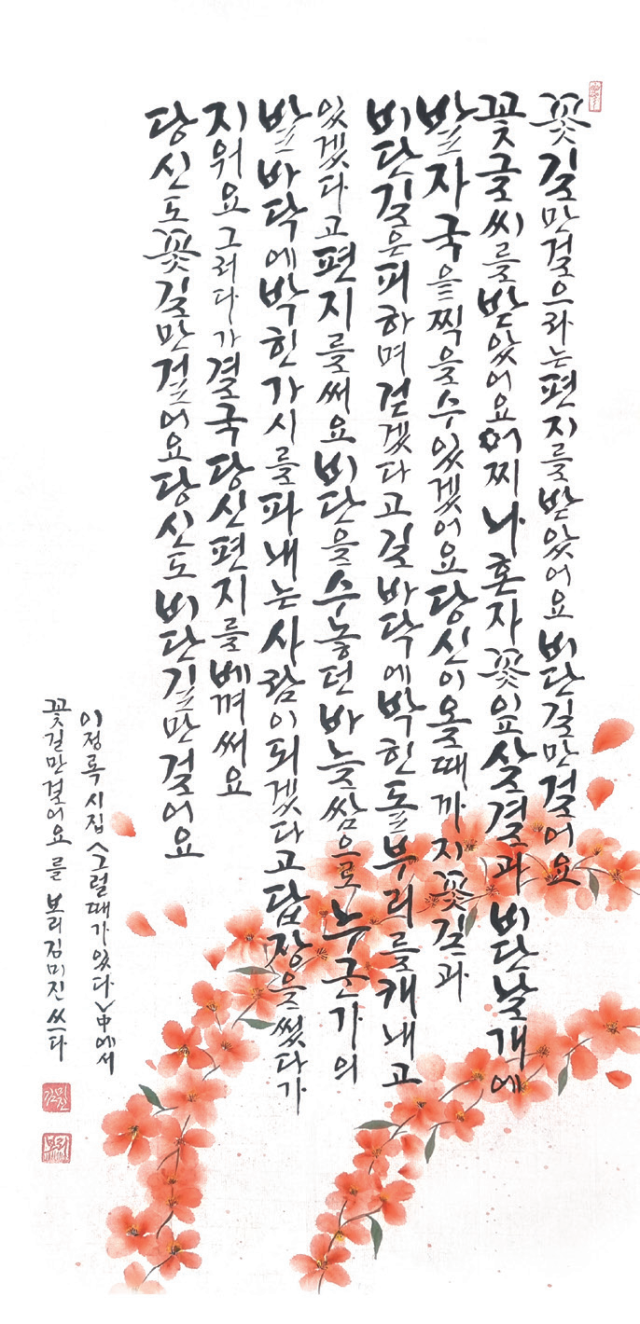 꽃길만걸으라는편지를받았어요비단길만걸어요
꽃글씨를받았어요어찌나혼자꽃잎살결과비단날개에
발자국을찍을수있겠어요당신이올때까지꽃길과
비단길은피하며걷겠다고길바닥에박힌돌부리를캐내고
있겠다고편지를써요비단을수놓던바늘쌈으로누군가의
발바닥에박힌가시를파내는사람이되겠다고답장을썼다가
지워요그러다가결국당신편지를베껴써요
당신도꽃길만걸어요당신도비단길만걸어요
이정록시집<그럴때가있다>中에서
꽃길만걸어요를 보리김미진쓰다